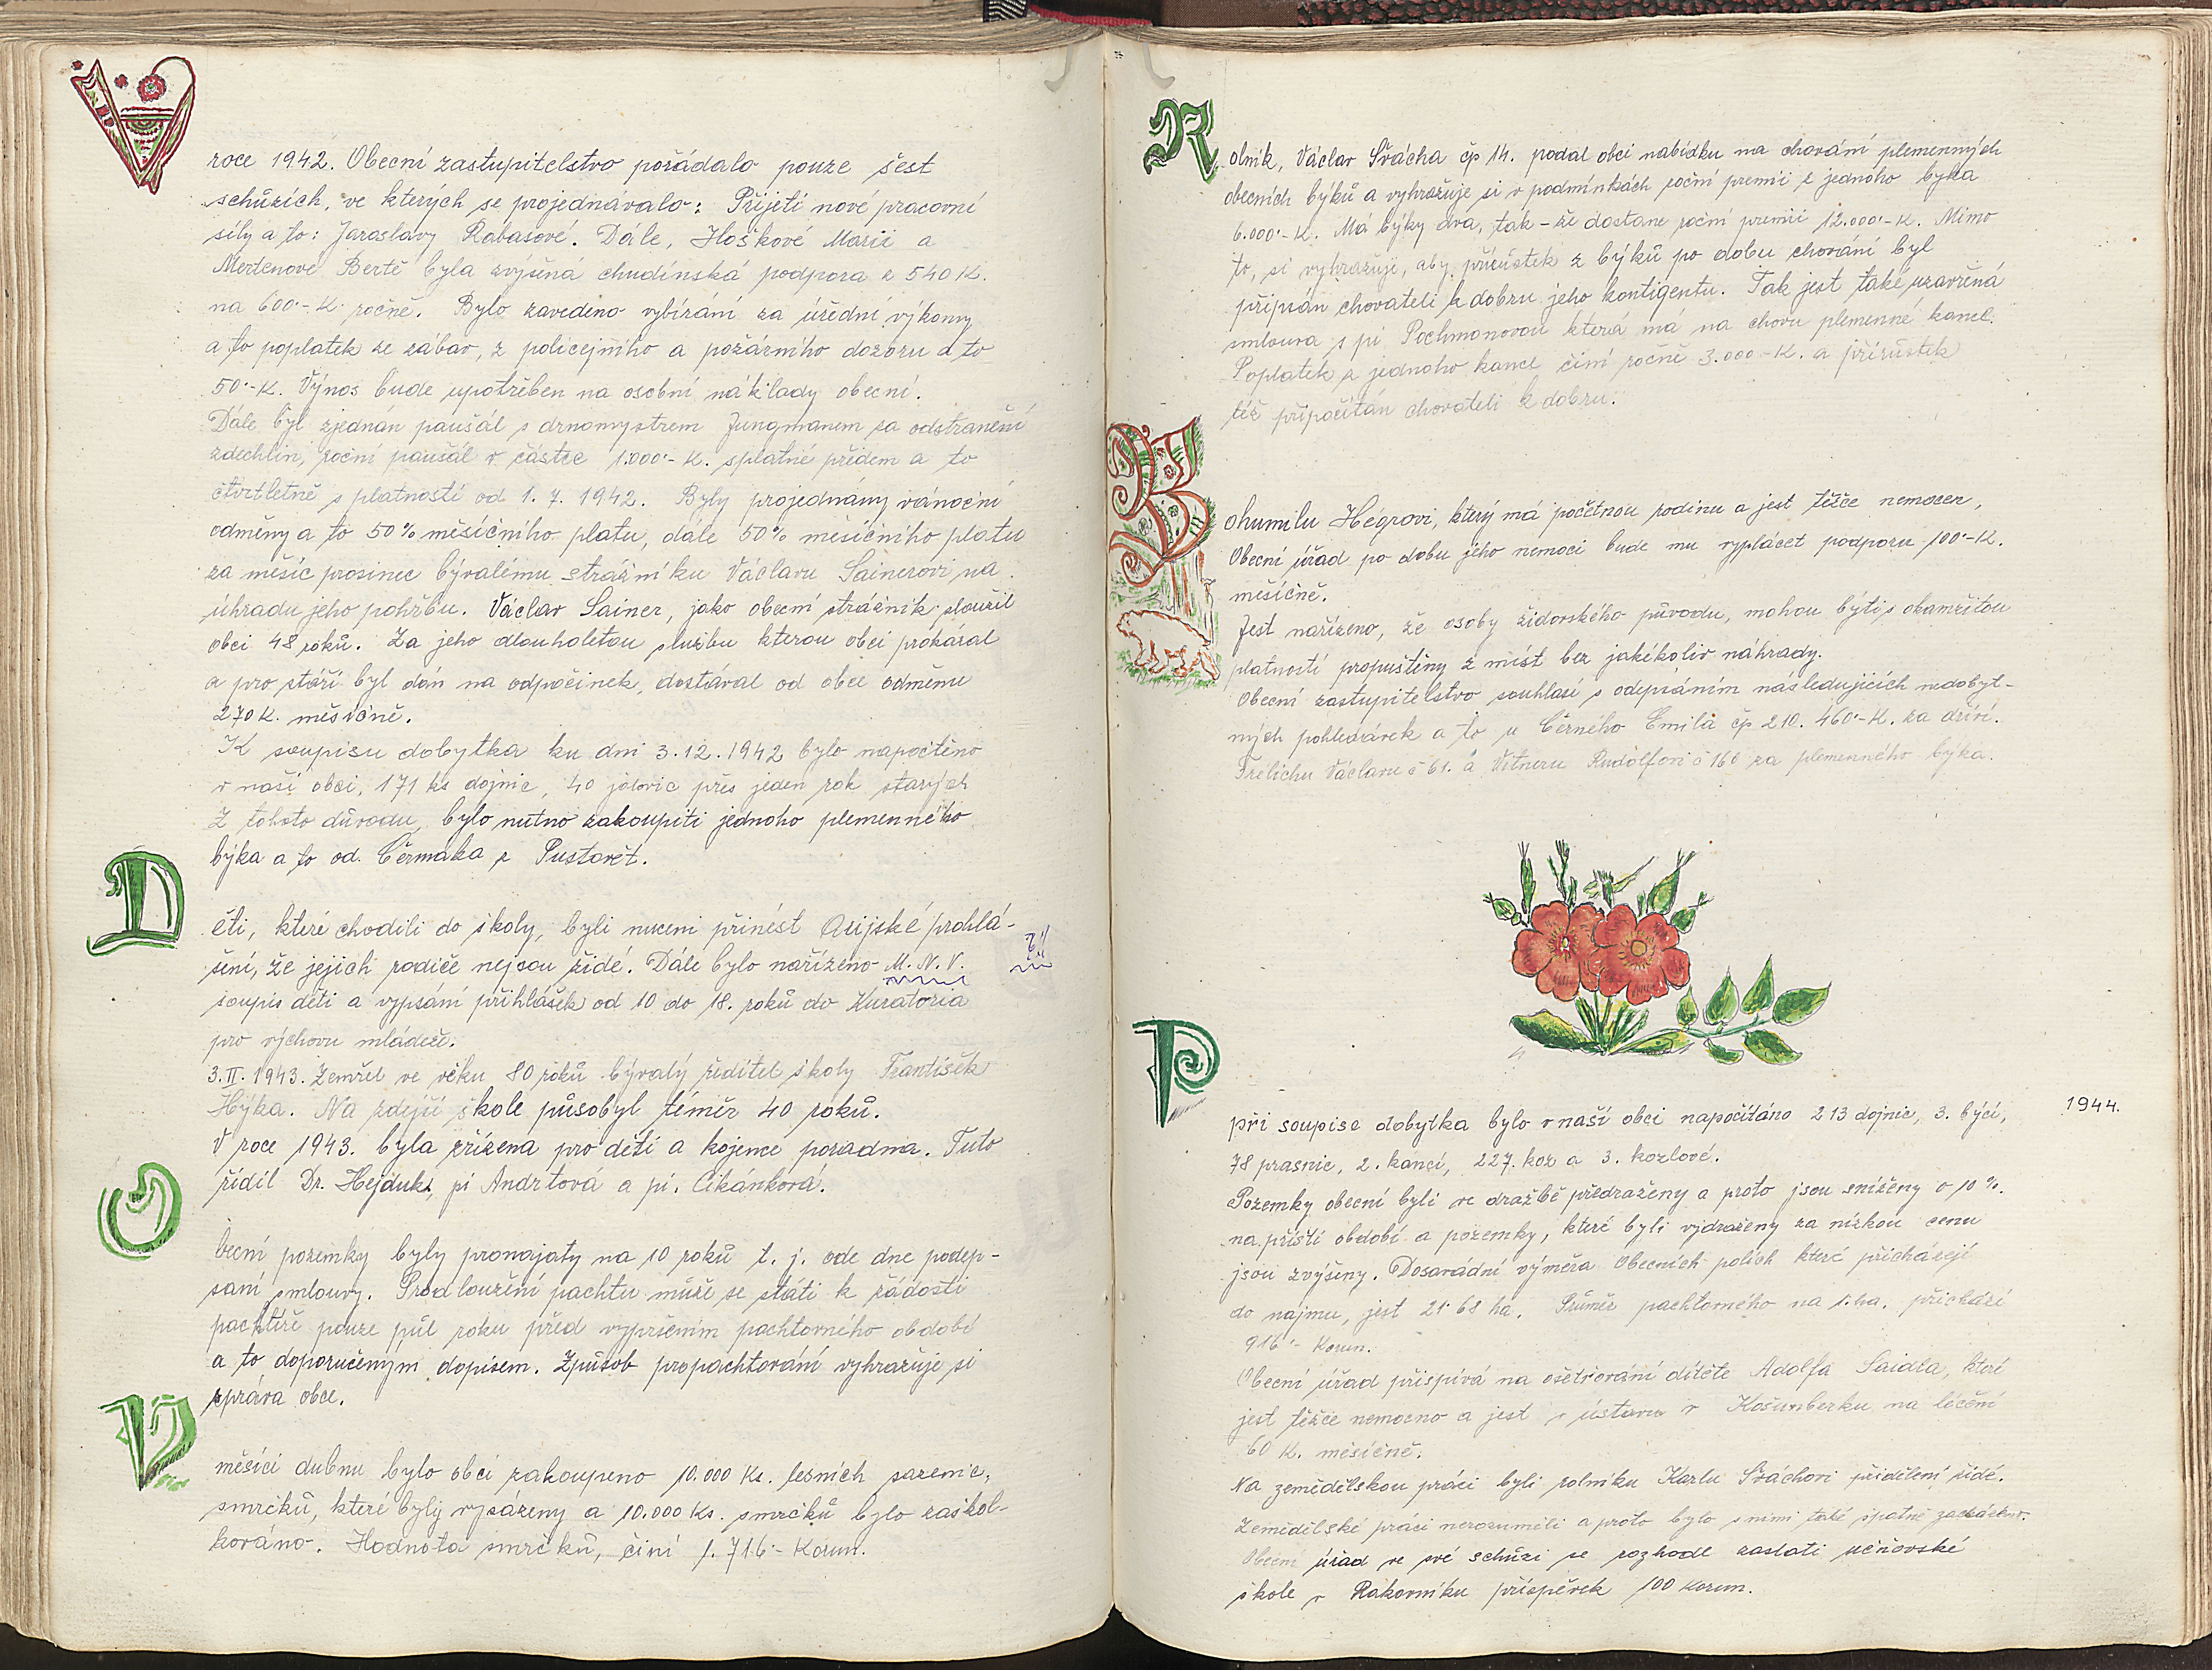 V
roce 1942. Obecní zastupitelstvo pořádalo pouze šest
schůzích, ve kterých se projednávalo: Přijetí nové pracovní
síly a to: Jaroslavy Rabasové. Dále, Hoškové Marii a
Mertenové Bertě byla zvýšená chudinská podpora z 540 K.
na 600·-K ročně. Bylo zavedeno vybírání za úřední výkony
a to poplatek ze zábav, z policejního a požárního dozoru a to
50·-K. Výnos bude upotřeben na osobní náklady obecní.
Dále byl zjednán paušál s drnomystrem Jungmanem za odstranění
zdechlin, roční paušál v částce 1.000·-K. splatné předem a to
čtvrtletně s platností od 1. 7. 1942. Byly projednány vánoční
odměny a to 50% měsíčního platu, dále 50% měsíčního platu
za měsíc prosinec bývalému strážníku Václavu Sainerovi na
úhradu jeho pohřbu. Václav Sainer, jako obecní strážník sloužil
obci 48 roků. Za jeho dlouholetou službu kterou obci prokázal
a pro stáří byl dán na odpočinek, dostával od obce odměnu
270 K. měsíčně.
K soupisu dobytka ku dni 3.12.1942 bylo napočteno
v naší obci, 171 ks dojnic, 40 jalovic přes jeden rok starých
Z tohoto důvodu, bylo nutno zakoupiti jednoho plemenného
býka a to od. Čermáka z Pustovět.
D
ěti, které chodili do školy, byli nuceni přinést Arijské prohlá-
šení, že jejich rodiče nejsou židé. Dále bylo nařízeno M. N. V.
soupis dětí a vypsání přihlášek od 10 do 18. roků do Kuratoria
pro výchovu mládeže.
3.II.1943. Zemřel ve věku 80 roků bývalý ředitel školy František
Hýka. Na zdejší škole působyl téměr 40 roků.
V roce 1943. byla zřízena pro děti a kojence poradna. Tuto
řídil Dr. Hejduk, pí Andrtová a pí. Cikánková.
O
becní pozemky byly pronajaty na 10 roků t. j. ode dne podep-
saní smlouvy. Prodloužení pachtu může se státi k žádosti
pachtýře pouze půl roku před vypršením pachtovného období
a to doporučeným dopisem. Způsob propachtování vyhrazuje si
správa obce.
V
měsíci dubnu bylo obci zakoupeno 10.000 Ks. lesních sazenic,
smrčků, které byly vysázeny a 10.000 Ks. smrčků bylo zaškol-
kováno. Hodnota smrčků, činí 1.716·- Korun.
R
olník, Václav Švácha čp 14. podal obci nabídku na chování plemenných
obecních býků a vyhrazuje si v podmínkách roční premii z jednoho býka
6.000·-K. Má býky dva, tak-že dostane roční premii 12.000·-K. Mimo
to, si vyhrazuje, aby přírůstek z býků po dobu chování byl
připsán chovateli k dobru jeho kontigentu. Tak jest také uzavřená
smlouva s pí Pochmonovou která má na chovu plemenné kance.
Poplatek z jednoho kance činí ročně 3.000-K. a přírůstek
též připočítán chovateli k dobru.
B
ohumilu Hégrovi, který má početnou rodinu a jest těžce nemocen,
Obecní úřad po dobu jeho nemoci bude mu vyplácet podporu 100·-K.
měsíčně.
Jest nařízeno, že osoby židovského původu, mohou býti s okamžitou
platností propuštěny z míst bez jakékoliv náhrady.
Obecní zastupitelstvo souhlasí s odepsáním následujících nedobyt-
ných pohledávek a to u Černého Emila čp 210. 460·-K. za dříví.
Frélichu Václavu č 61. a Vitneru Rudolfovi č 160 za plemenného býka.
P
při soupise dobytka bylo v naší obci napočítáno 213 dojnic, 3. býci,
1944.
78 prasnic, 2. kanci, 227. koz a 3. kozlové.
Pozemky obecní byli ve dražbě předraženy a proto jsou sníženy o 10 %.
na příští období a pozemky, které byli vydraženy za nízkou cenu
jsou zvýšeny. Dosavádní výměra Obecních polích které přicházejí
do nájmu, jest 21·68 ha. Průměr pachtovného na 1. ha. přichází
916·- Korun.
Obecní úřad přispívá na ošetřování dítěte Adolfa Saidla, které
jest těžce nemocno a jest v ústavu v Košumberku na léčení
60 K. měsíčně.
Na zemědělskou práci byli rolníku Karlu Sváchovi přidělení židé.
Zemědělské práci nerozuměli a proto bylo s nimi také špatně zacházeno.
Obecní úřad ve své schůzi se rozhodl zaslati učňovské
škole v Rakovníku příspěvek 100 Korun.